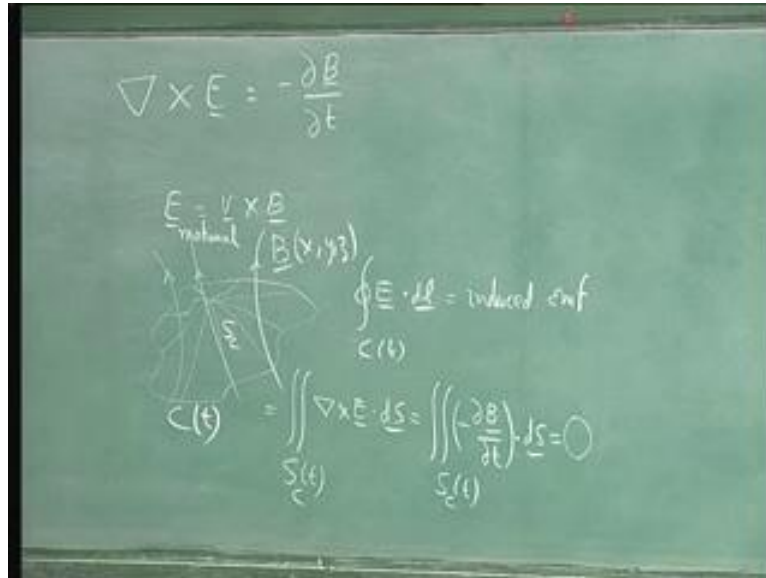 ∇ × E = -∂B/∂t
E = V × B
motional
B(x,y,z)
S_C
∮_{C(t)} E · dl = induced emf
C(t)
= ∬_{S_C(t)} ∇×E · dS = ∬_{S_C(t)} (-∂B/∂t) · dS = 0